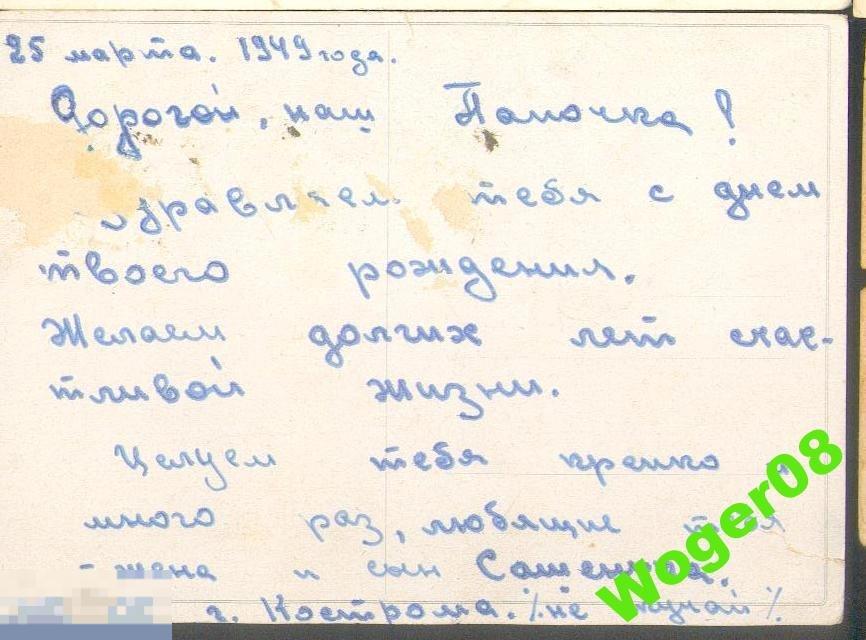 25 марта. 1949 года.
Дорогой, наш Папочка!
тебя с днем
твоего рождения.
Желаем долгих лет счас-
тливой жизни.
Целуем тебя крепко и
много раз, любящие тебя
- жена и сын Сашенька.
г. Кострома. /не скучай/
Woger08